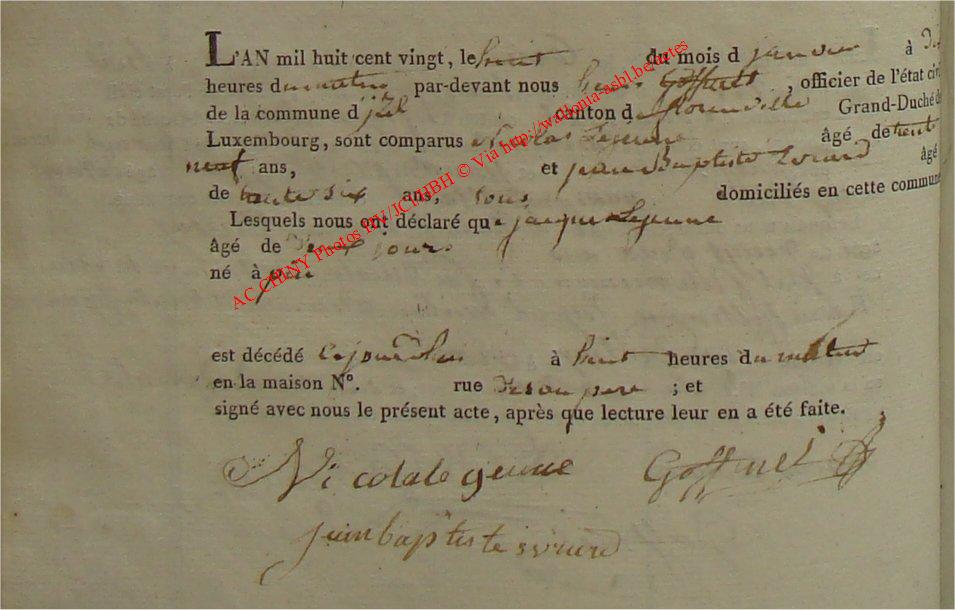 L'AN mil huit cent vingt, le huit du mois d janvier à
heures du matin par-devant nous Goffinet, officier de l'état civil
de la commune d canton de florenville Grand-Duché de
Luxembourg, sont comparus Nicolas Lejeune âgé de trente
neuf ans, et jean Baptiste Evrard âgé
de trente six ans, tous domiciliés en cette commune
Lesquels nous ont déclaré que jacque Lejeune
âgé de jours
né à
est décédé cejourdhui à huit heures du matin
en la maison N°. rue de son pere ; et
signé avec nous le présent acte, après que lecture leur en a été faite.
Nicola le geune Goffinet
juin baptiste evrard
AC CHINY Photos BV/JCH/BH © Via http://wallonia-asbl.be/actes